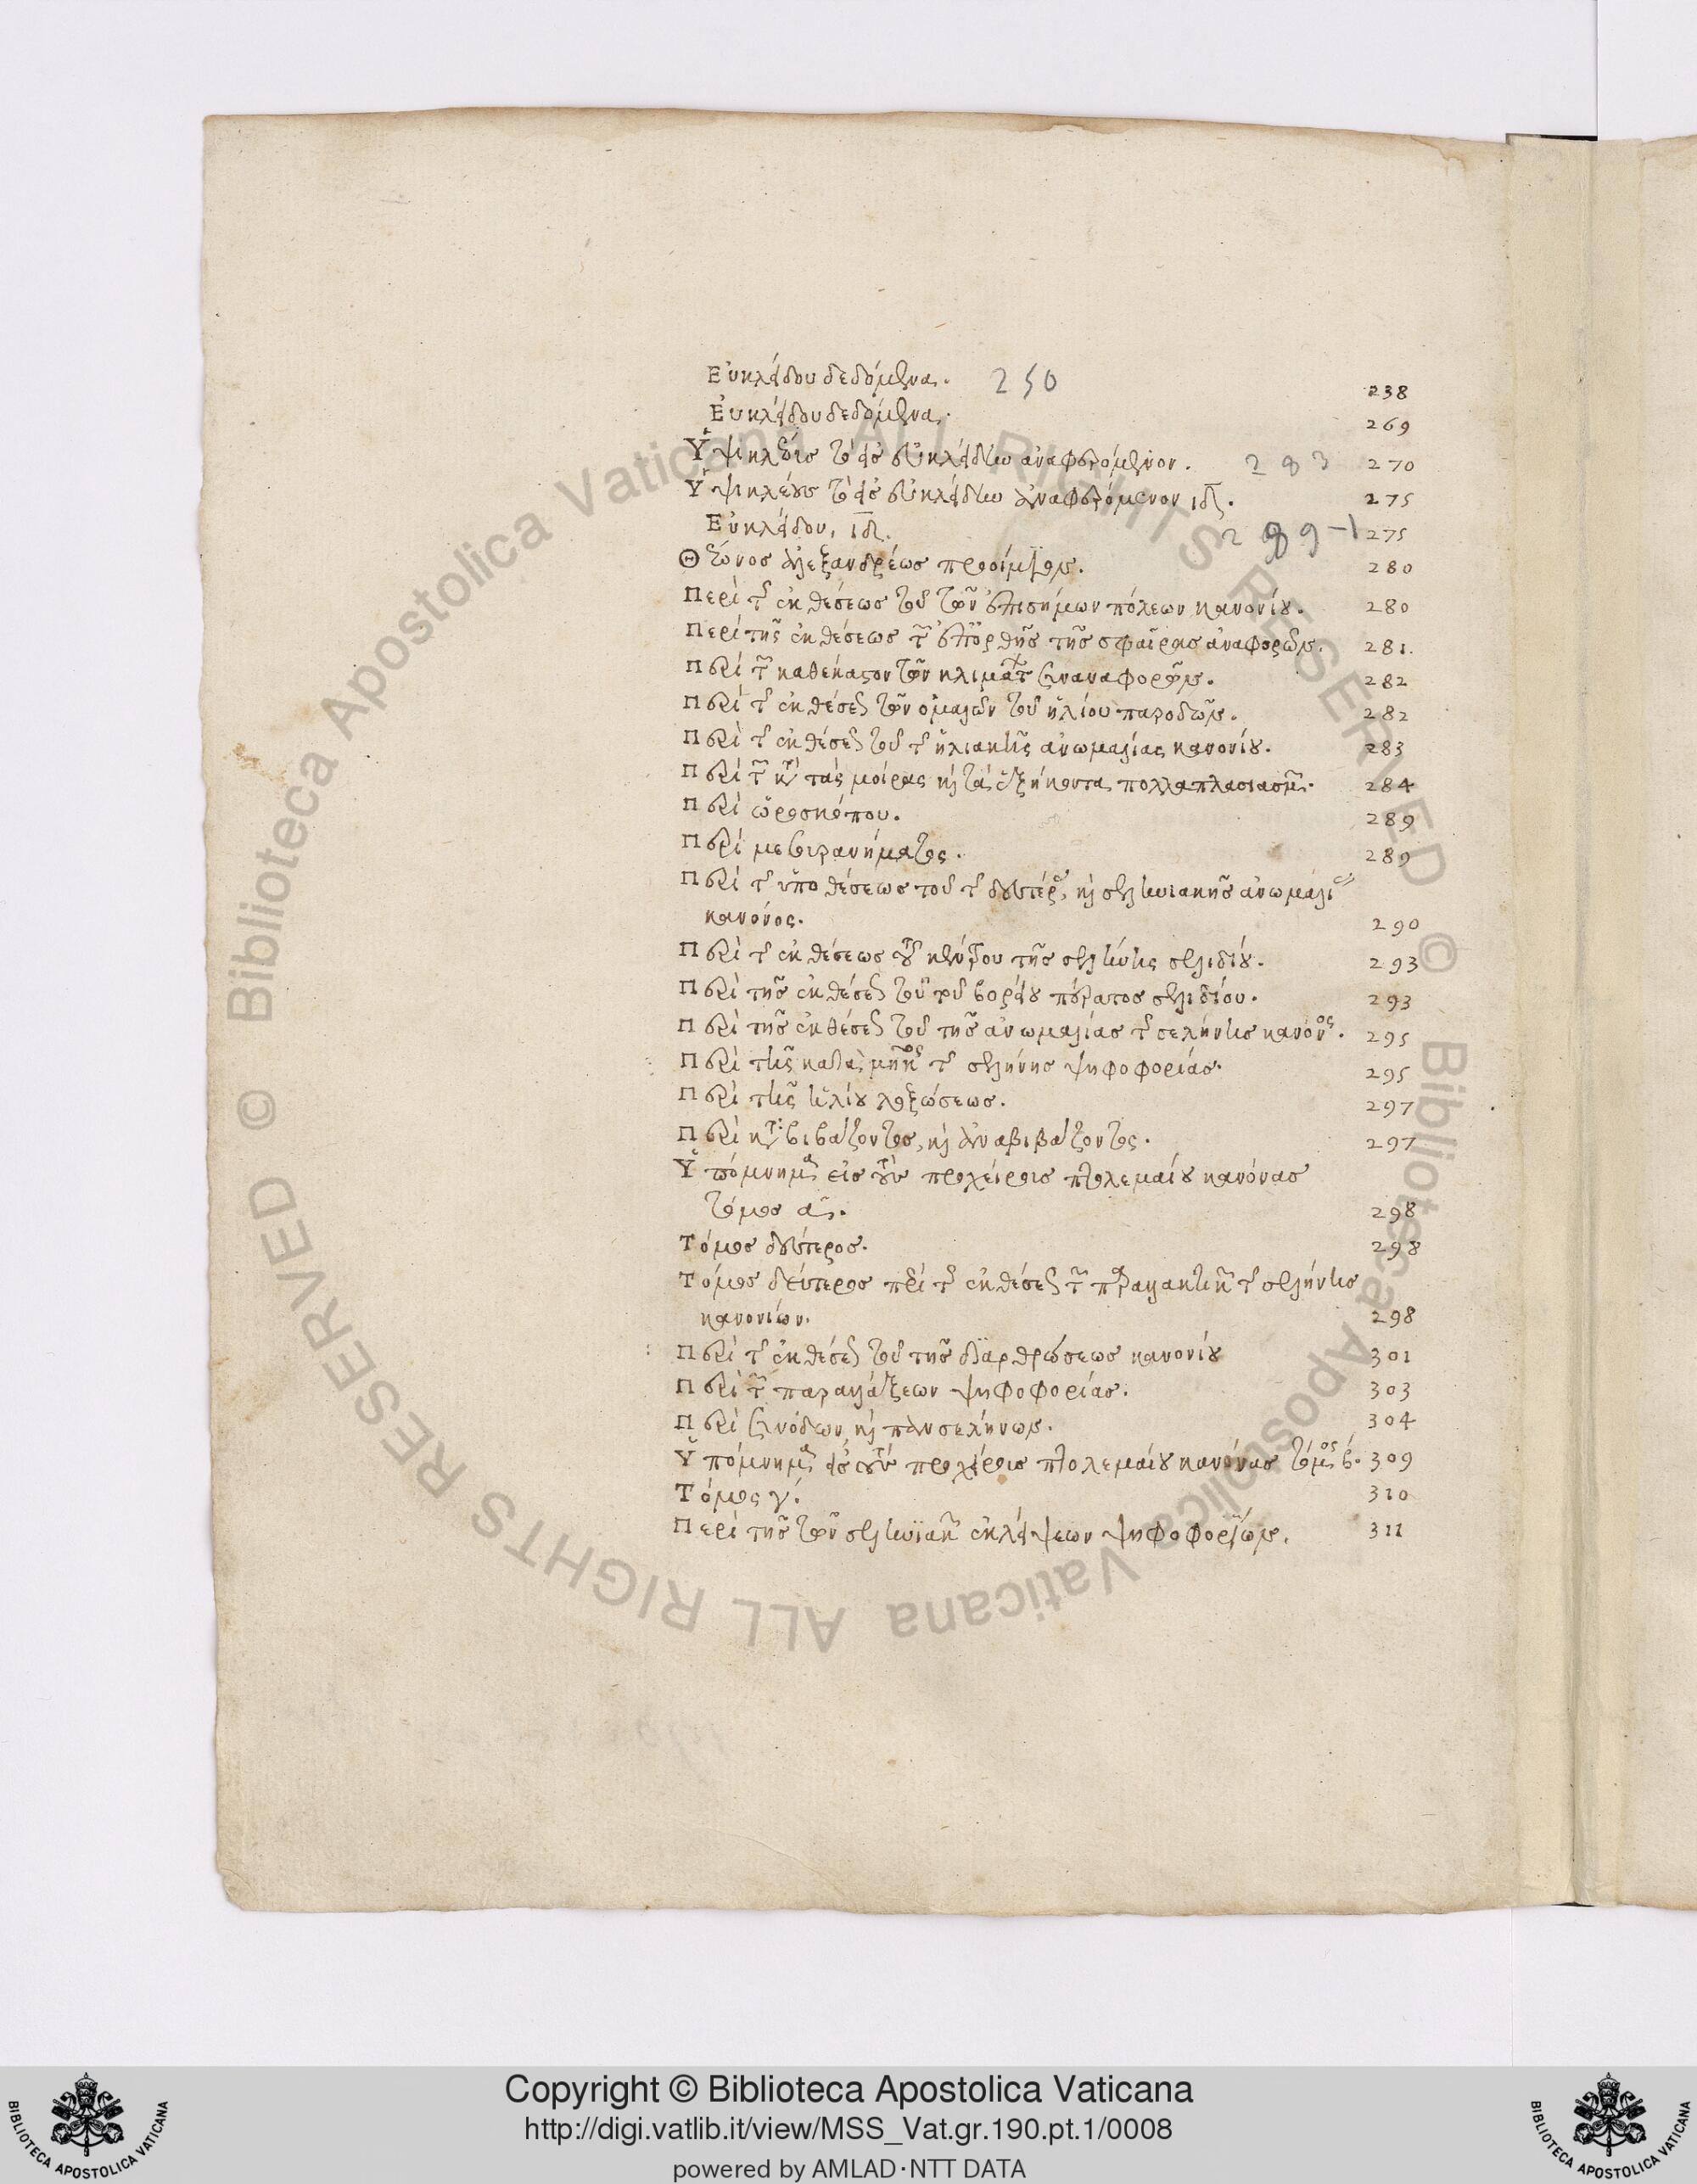 Εὐκλείδου δεδόμενα. 250 238
Εὐκλείδου δεδόμενα. 269
Ὑψικλέους τὸ εἰς Εὐκλείδην ἀναφερόμενον. 283 270
Ὑψικλέους τὸ εἰς Εὐκλείδην ἀναφερόμενον ιδ. 275
Εὐκλείδου, ιδ. 275
Θέωνος ἀλεξανδρέως προοίμιον. 280
Περὶ τῆς ἐκθέσεως τοῦ τῶν ἐπισήμων πόλεων κανονίου. 280
Περὶ τῆς ἐκθέσεως τῶν ἐπ' ὀρθῆς τῆς σφαίρας ἀναφορῶν. 281.
Περὶ τῶν καθ' ἕκαστον τῶν κλιμάτων συναναφορῶν. 282
Περὶ τῆς ἐκθέσεως τῶν ὁμαλῶν τοῦ ἡλίου παρόδων. 282
Περὶ τῆς ἐκθέσεως τοῦ τῆς ἡλιακῆς ἀνωμαλίας κανονίου. 283
Περὶ τῶν κατὰ τὰς μοίρας καὶ τὰ ἑξήκοντα πολλαπλασιασμῶν. 284
Περὶ ὡροσκόπου. 289
Περὶ μεσουρανήματος. 289
Περὶ τῆς ὑποθέσεως τοῦ τῆς δευτέρας καὶ σεληνιακῆς ἀνωμαλίας
κανόνος. 290
Περὶ τῆς ἐκθέσεως τοῦ κέντρου τῆς σελήνης σελιδίου. 293
Περὶ τῆς ἐκθέσεως τοῦ τοῦ βορείου πέρατος σελιδίου. 293
Περὶ τῆς ἐκθέσεως τοῦ τῆς ἀνωμαλίας τῆς σελήνης κανόνος. 295
Περὶ τῆς κατὰ μῆκος τῆς σελήνης ψηφοφορίας. 295
Περὶ τῆς ἡλίου λοξώσεως. 297
Περὶ καταβιβάζοντος, καὶ ἀναβιβάζοντος. 297
Ὑπόμνημα εἰς τοὺς προχείρους πτολεμαίου κανόνας
τόμος α. 298
Τόμος δεύτερος. 298
Τόμος δεύτερος περὶ τῆς ἐκθέσεως τῶν παραλλακτικῶν τῆς σελήνης
κανονίων. 298
Περὶ τῆς ἐκθέσεως τοῦ τῆς διαρθρώσεως κανονίου 301
Περὶ τῶν παραλλάξεων ψηφοφορίας. 303
Περὶ συνόδων καὶ πανσελήνων. 304
Ὑπόμνημα εἰς τοὺς προχείρους πτολεμαίου κανόνας τόμος β. 309
Τόμος γ. 310
Περὶ τῆς τῶν σεληνιακῶν ἐκλείψεων ψηφοφοριῶν. 311
Copyright © Biblioteca Apostolica Vaticana
http://digi.vatlib.it/view/MSS_Vat.gr.190.pt.1/0008
powered by AMLAD·NTT DATA
© Biblioteca Apostolica Vaticana ALL RIGHTS RESERVED © Biblioteca Apostolica Vaticana ALL RIGHTS RESERVED
BIBLIOTECA APOSTOLICA VATICANA
BIBLIOTECA APOSTOLICA VATICANA